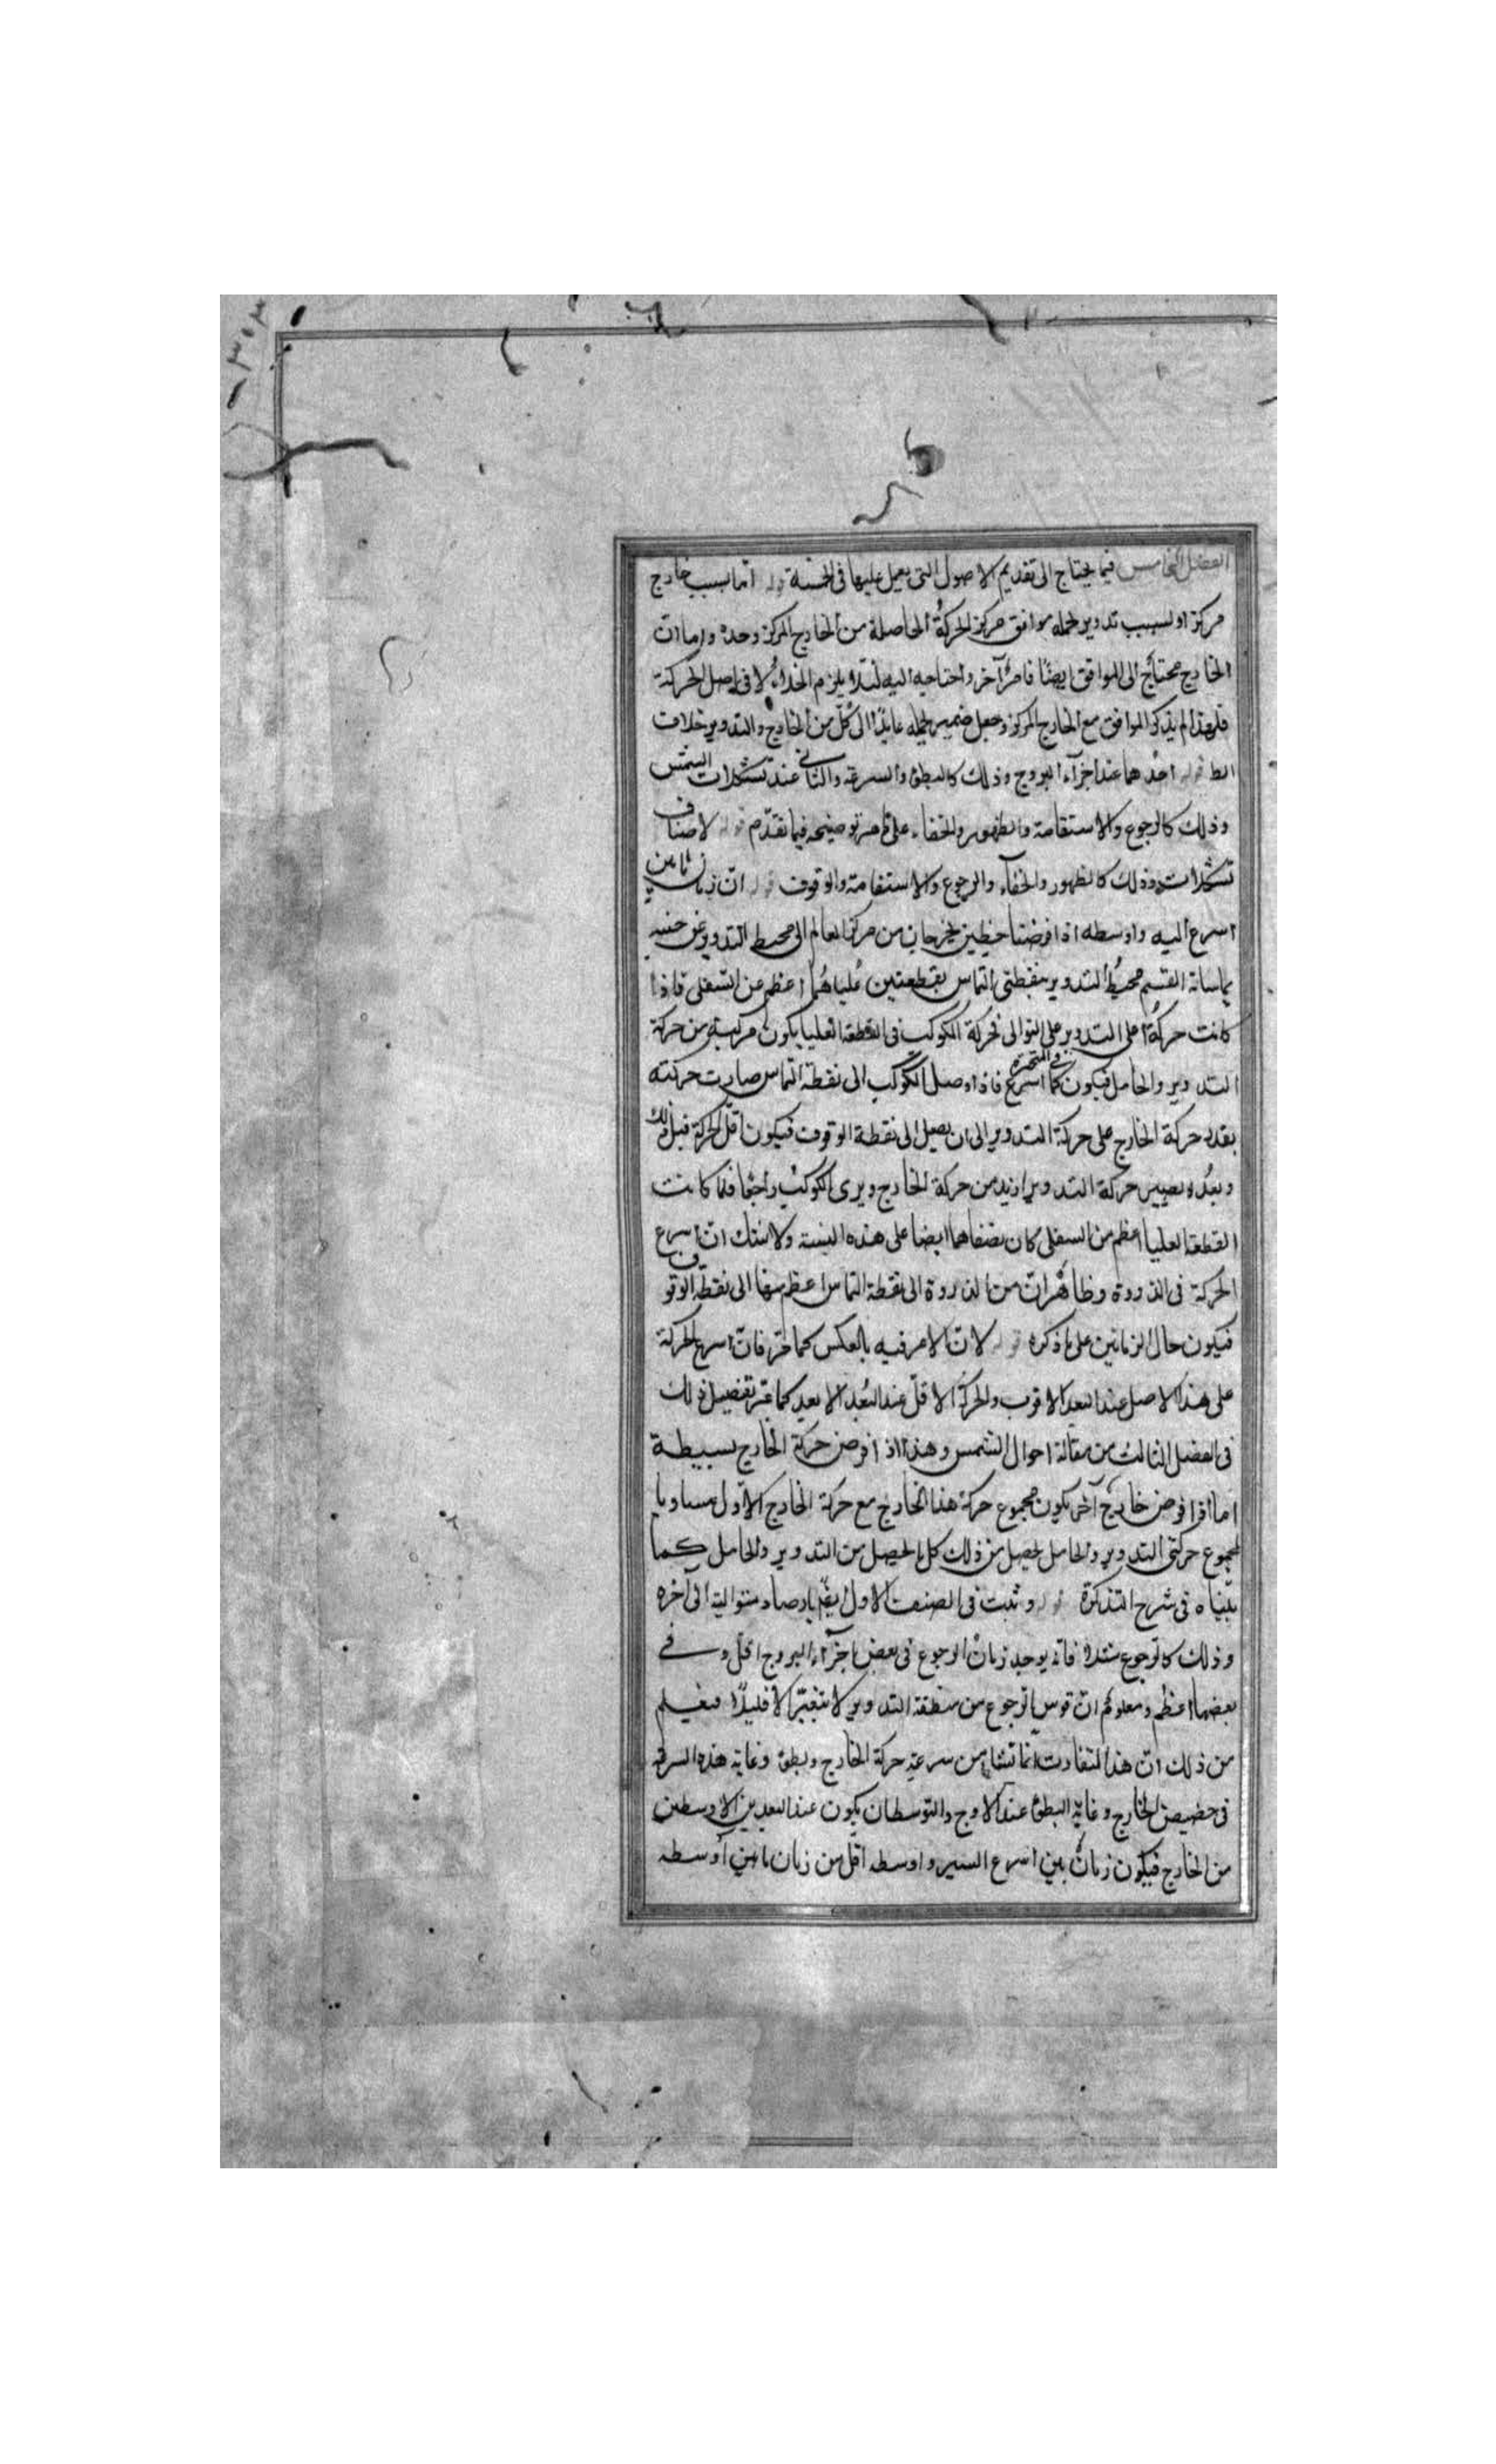 الفصل الخامس فيما يحتاج الى تقديم الاصول التى يعمل عليها فى الخمسة قوله اما بسبب خارج
مركز او بسبب تدوير يحمله موافق مركز الحركة الحاصلة من الخارج المركز وحده واما ان
الخارج محتاج الى الموافق ايضا فامر آخر واحتياجه اليه لئلا يلزم الخلاء لا فى اصل الحركة
فلهذا لم يذكر الموافق مع الخارج المركز وجعل ضمير يحمله عايدا الى كل من الخارج والتدوير خلاف
الظ قوله احدهما عند اجزآء البروج وذلك كالبطؤ والسرعة والثانى عند تشكلات الشمس
وذلك كالرجوع والاستقامة والظهور والخفاء على ما مر توضيحه فيما تقدم قوله لاصناف
تشكلات وذلك كالظهور والخفآء والرجوع والاستقامة والوقوف قوله ان زمان ما من
اسرع اليه واوسطه اذا فرضنا خطين يخرجان من مركز العالم الى محيط التدوير عن جنبيه
يماسانه انقسم محيط التدوير بنقطتى التماس بقطعتين علياهما اعظم من السفلى فاذا
كانت حركة اعلى التدوير على التوالى فحركة الكوكب فى القطعة العليا يكون مركبة من حركة
التدوير والحامل فيكون كما فى المتحيرة اسرع فاذا وصل الكوكب الى نقطة التماس صارت حركته
بقدر حركة الخارج على حركة التدوير الى ان يصل الى نقطة الوقوف فيكون اقل الحركة قبل ذلك
وبعده يصير حركة التدوير ازيد من حركة الخارج ويرى الكوكب راجعا فلما كانت
القطعة العليا اعظم من السفلى كان نصفاهما ايضا على هذه النسبة ولا شك ان اسرع
الحركة فى الذروة وظاهر ان من الذروة الى نقطة التماس اعظم منها الى نقطة الوقوف
فيكون حال الزمانين على ما ذكره قوله لان الامر فيه بالعكس كما مر فان اسرع الحركة
على هذا الاصل عند البعد الاقرب والحركة الاقل عند البعد الابعد كما مر تفصيل ذلك
فى الفصل الثالث من مقالة احوال الشمس وهذا اذا فرض حركة الخارج بسيطة
اما اذا فرض خارج آخر يكون مجموع حركة هذا الخارج مع حركة الخارج الاول مساويا
لمجموع حركتى التدوير والحامل يحصل من ذلك كل ما يحصل من التدوير والحامل كما
بيناه فى شرح التذكرة قوله وثبت فى الصنف الاول بارصاد متوالية الى آخره
وذلك كالرجوع مثلا فانه يوجد زمان الرجوع فى بعض اجزآء البروج اقل وفى
بعضها اعظم ومعلوم ان قوس الرجوع من منطقة التدوير لا يتغير الا قليلا فيعلم
من ذلك ان هذا التفاوت انما نشأ من سرعة حركة الخارج وبطؤ وغاية هذه السرعة
فى حضيض الخارج وغاية البطؤ عند الاوج والتوسطان يكون عند البعدين الاوسطين
من الخارج فيكون زمان بين اسرع السير واوسطه اقل من زمان ما بين اوسطه